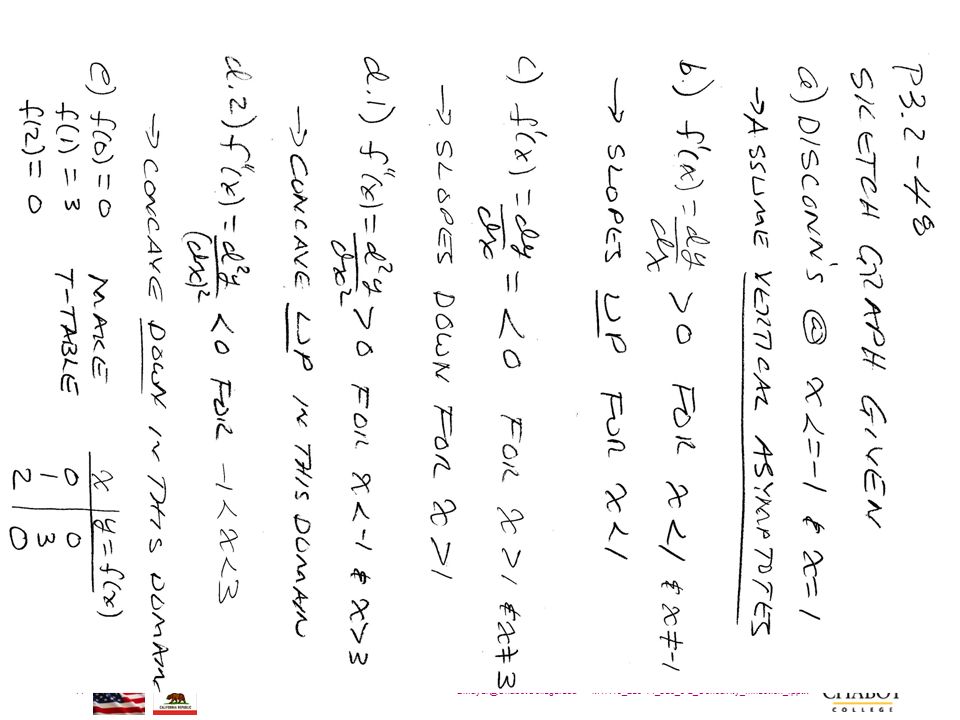 P3.2-48
SKETCH GRAPH GIVEN
a) DISCONN'S @ x<=-1 & x=1
→ ASSUME VERTICAL ASYMPTOTES
b.) f'(x) = dy/dx > 0 FOR x<1 & x≠-1
→ SLOPES UP FOR x<1
c) f'(x) = dy/dx = <0 FOR x>1 & x≠3
→ SLOPES DOWN FOR x>1
d.1) f"(x) = d²y/dx² > 0 FOR x<-1 & x>3
→ CONCAVE UP IN THIS DOMAIN
d.2) f"(x) = d²y/(dx)² < 0 FOR -1<x<3
→ CONCAVE DOWN IN THIS DOMAIN
e) f(0) = 0 MAKE x | y = f(x)
f(1) = 3 T-TABLE 0 | 0
f(2) = 0 1 | 3
2 | 0
CHABOT
COLLEGE
CALIFORNIA REPUBLIC